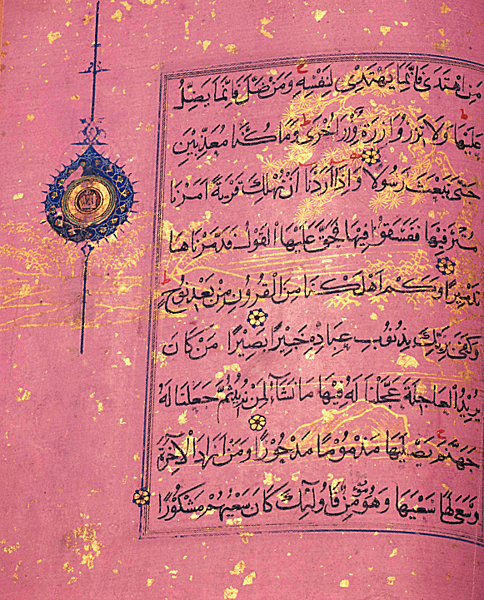 مَنِ اهْتَدَىٰ فَإِنَّمَا يَهْتَدِي لِنَفْسِهِ وَمَنْ ضَلَّ فَإِنَّمَا يَضِلُّ
عَلَيْهَا وَلَا تَزِرُ وَازِرَةٌ وِزْرَ أُخْرَىٰ وَمَا كُنَّا مُعَذِّبِينَ
حَتَّىٰ نَبْعَثَ رَسُولًا وَإِذَا أَرَدْنَا أَنْ نُهْلِكَ قَرْيَةً أَمَرْنَا
مُتْرَفِيهَا فَفَسَقُوا فِيهَا فَحَقَّ عَلَيْهَا الْقَوْلُ فَدَمَّرْنَاهَا
تَدْمِيرًا وَكَمْ أَهْلَكْنَا مِنَ الْقُرُونِ مِنْ بَعْدِ نُوحٍ
وَكَفَىٰ بِرَبِّكَ بِذُنُوبِ عِبَادِهِ خَبِيرًا بَصِيرًا مَنْ كَانَ
يُرِيدُ الْعَاجِلَةَ عَجَّلْنَا لَهُ فِيهَا مَا نَشَاءُ لِمَنْ نُرِيدُ ثُمَّ جَعَلْنَا لَهُ
جَهَنَّمَ يَصْلَاهَا مَذْمُومًا مَدْحُورًا وَمَنْ أَرَادَ الْآخِرَةَ
وَسَعَىٰ لَهَا سَعْيَهَا وَهُوَ مُؤْمِنٌ فَأُولَٰئِكَ كَانَ سَعْيُهُمْ مَشْكُورًا